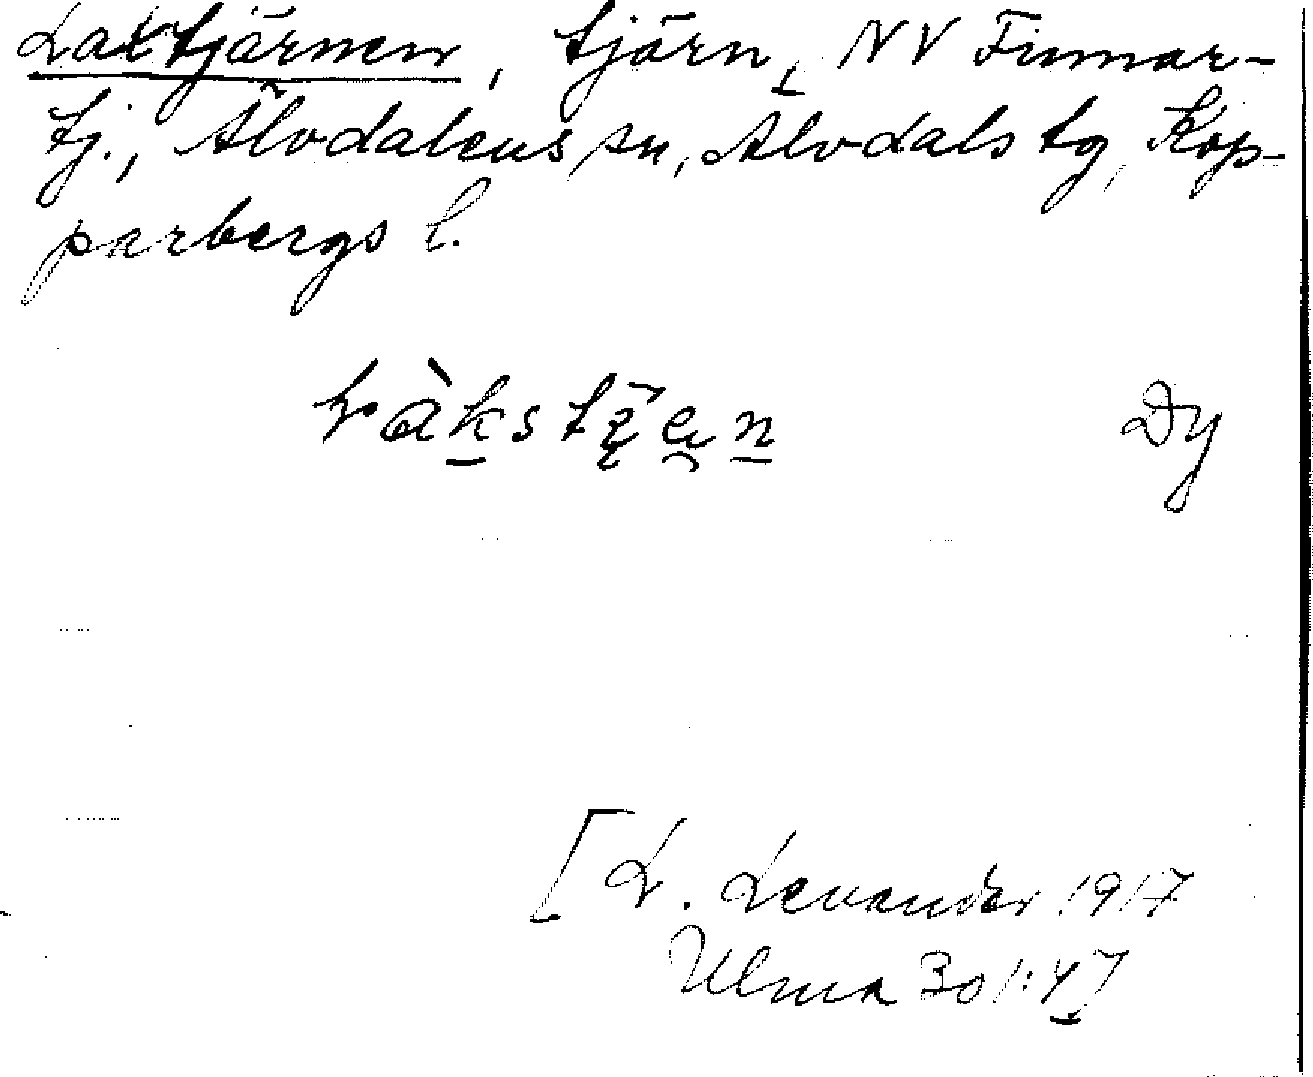 Laxtjärnen, tjärn, NV Finnmar-
tj., Älvdalens sn, Älvdals tg, Kop-
parbergs l.
Dy
[L. Levander 1917
Ulma 301:4]